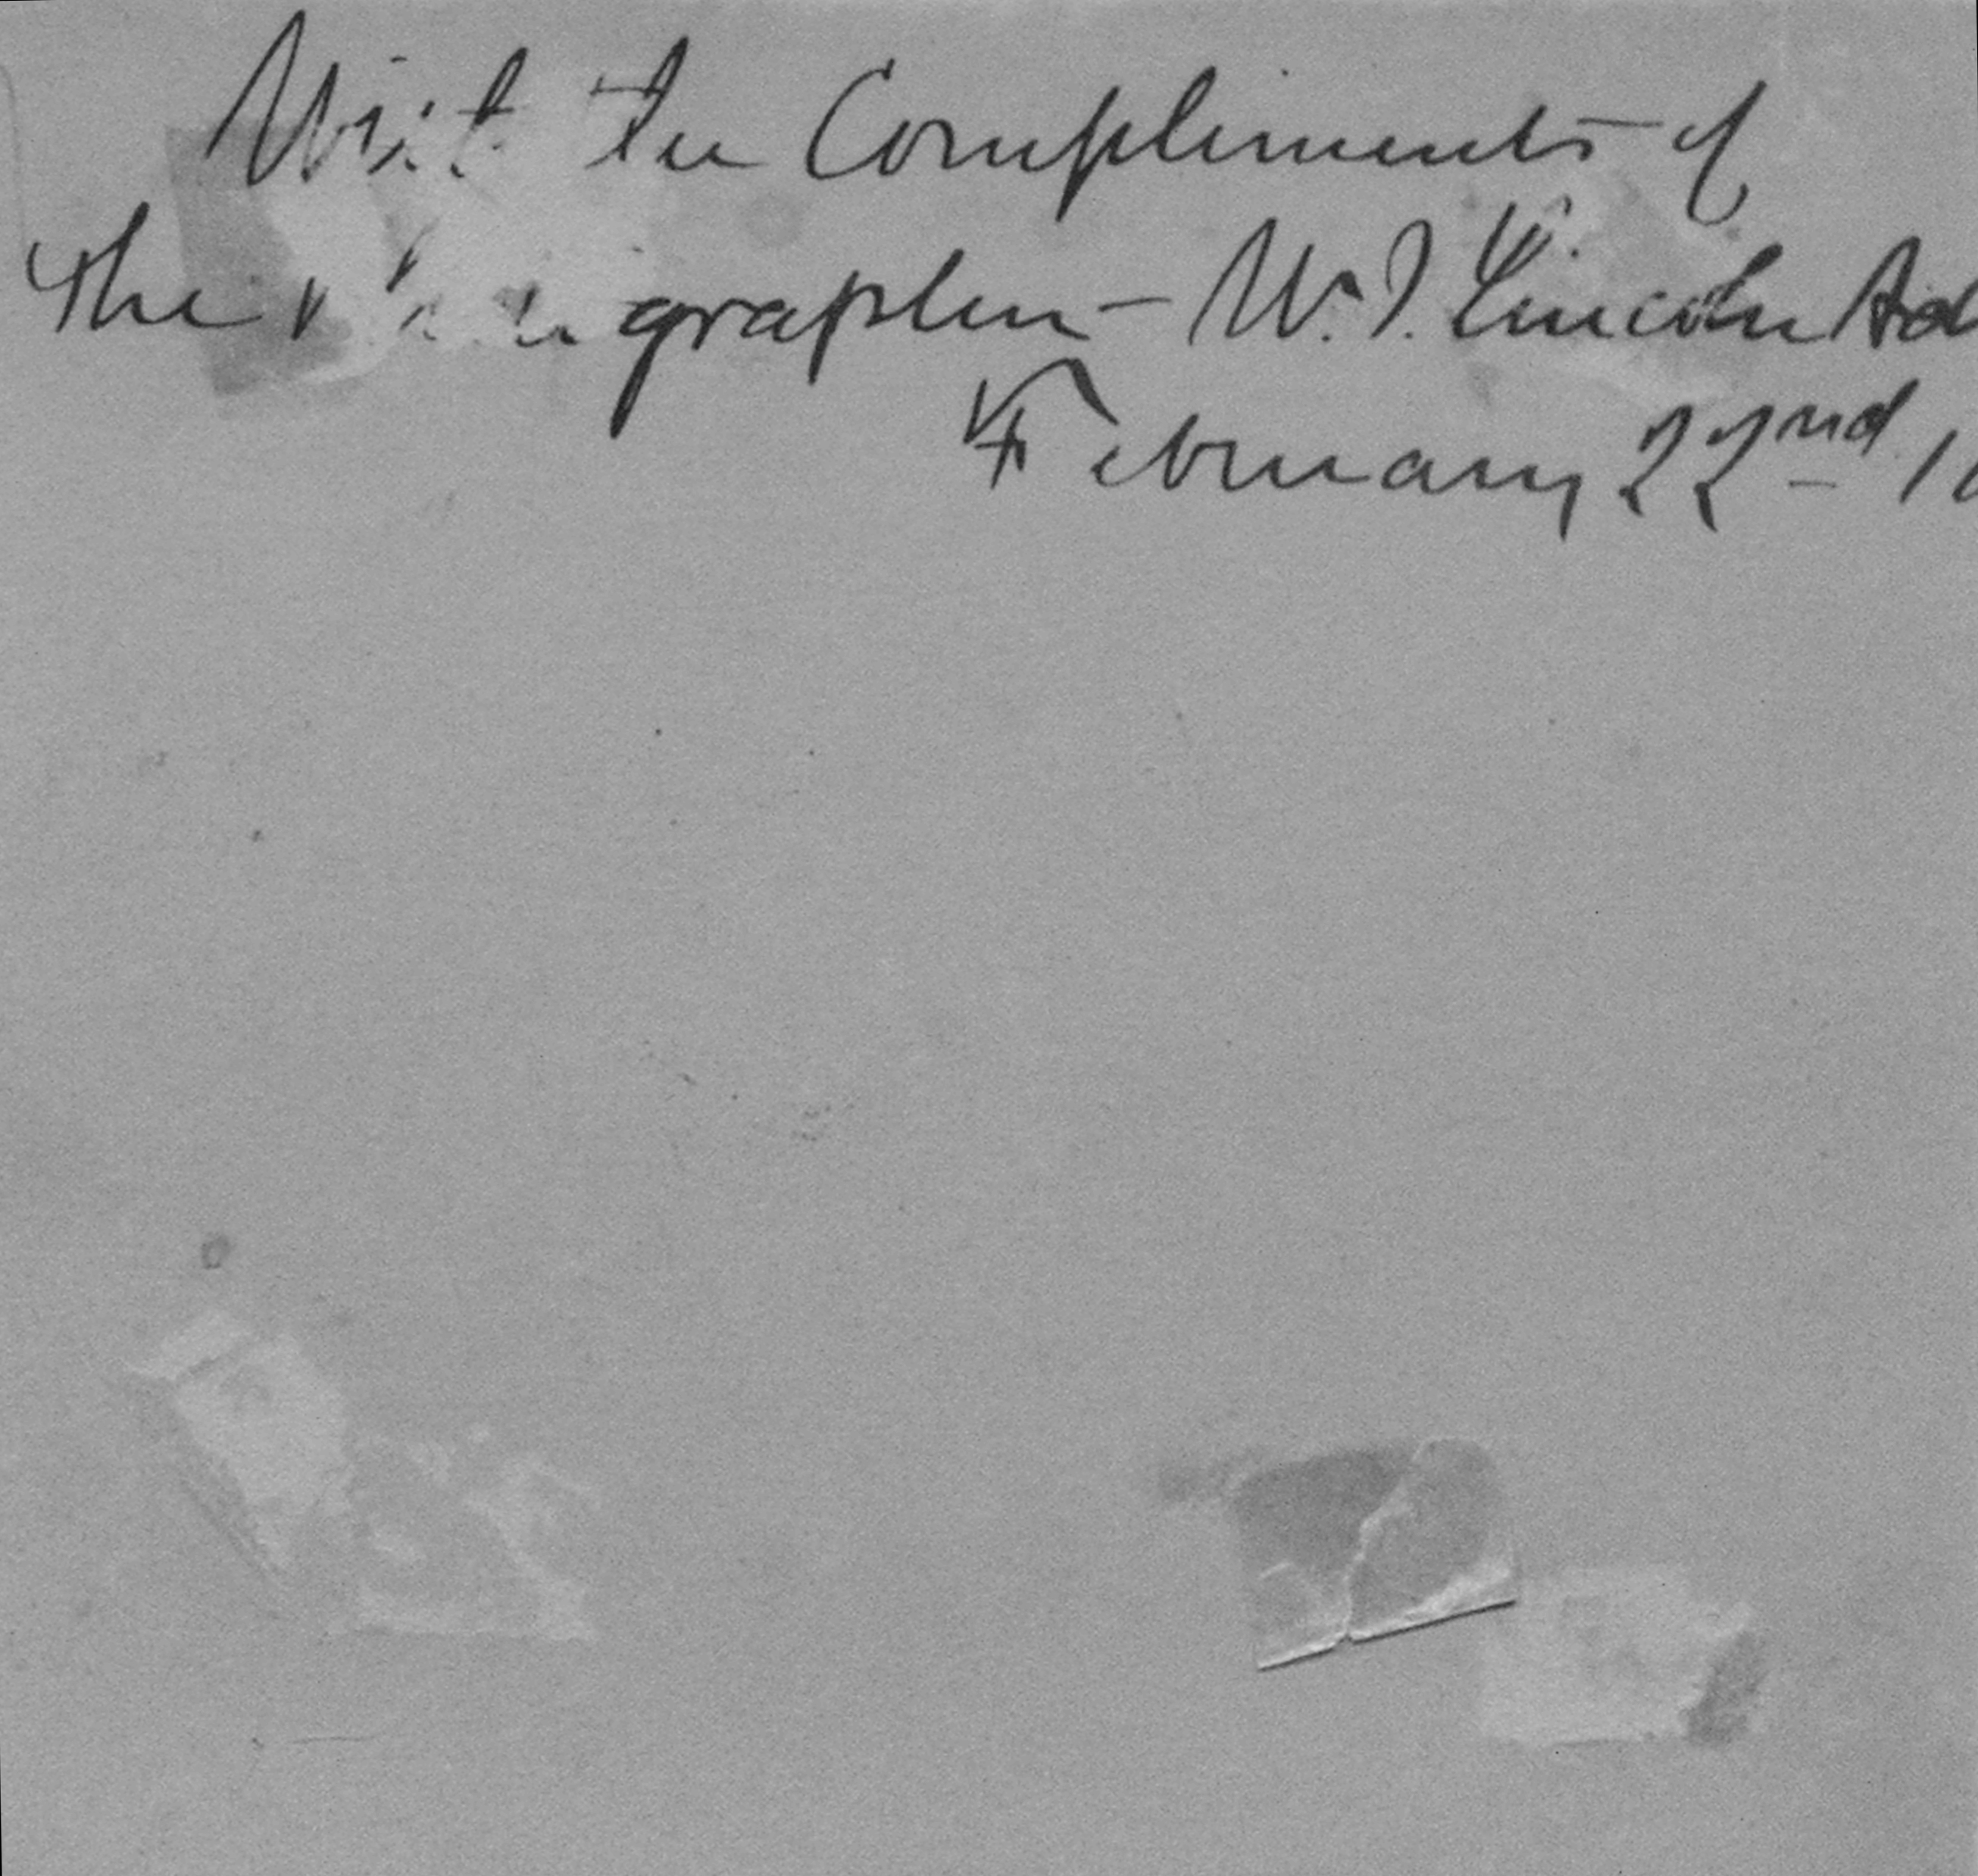 With the Compliments of
the Photographer - W. I. Lincoln Ad
February 22nd 1